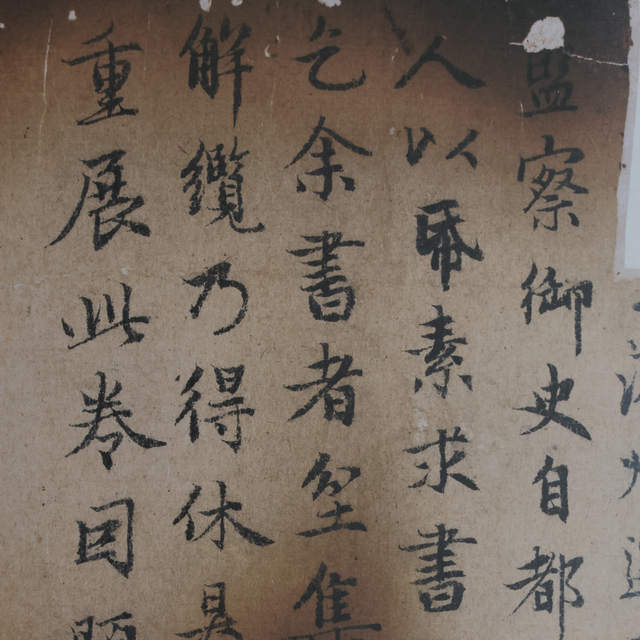 監察御史自都
人以帋素求書
乞余書者坌集
解纜乃得休是
重展此卷因題